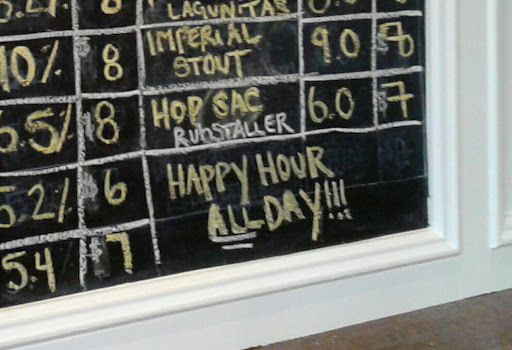 LAGUNITAS
10% $8 IMPERIAL 9.0 $8
STOUT
$8 HOP SAC 6.0 $7
RUHSTALLER
5.2% $6 HAPPY HOUR
ALL DAY!!!
5.4 $7